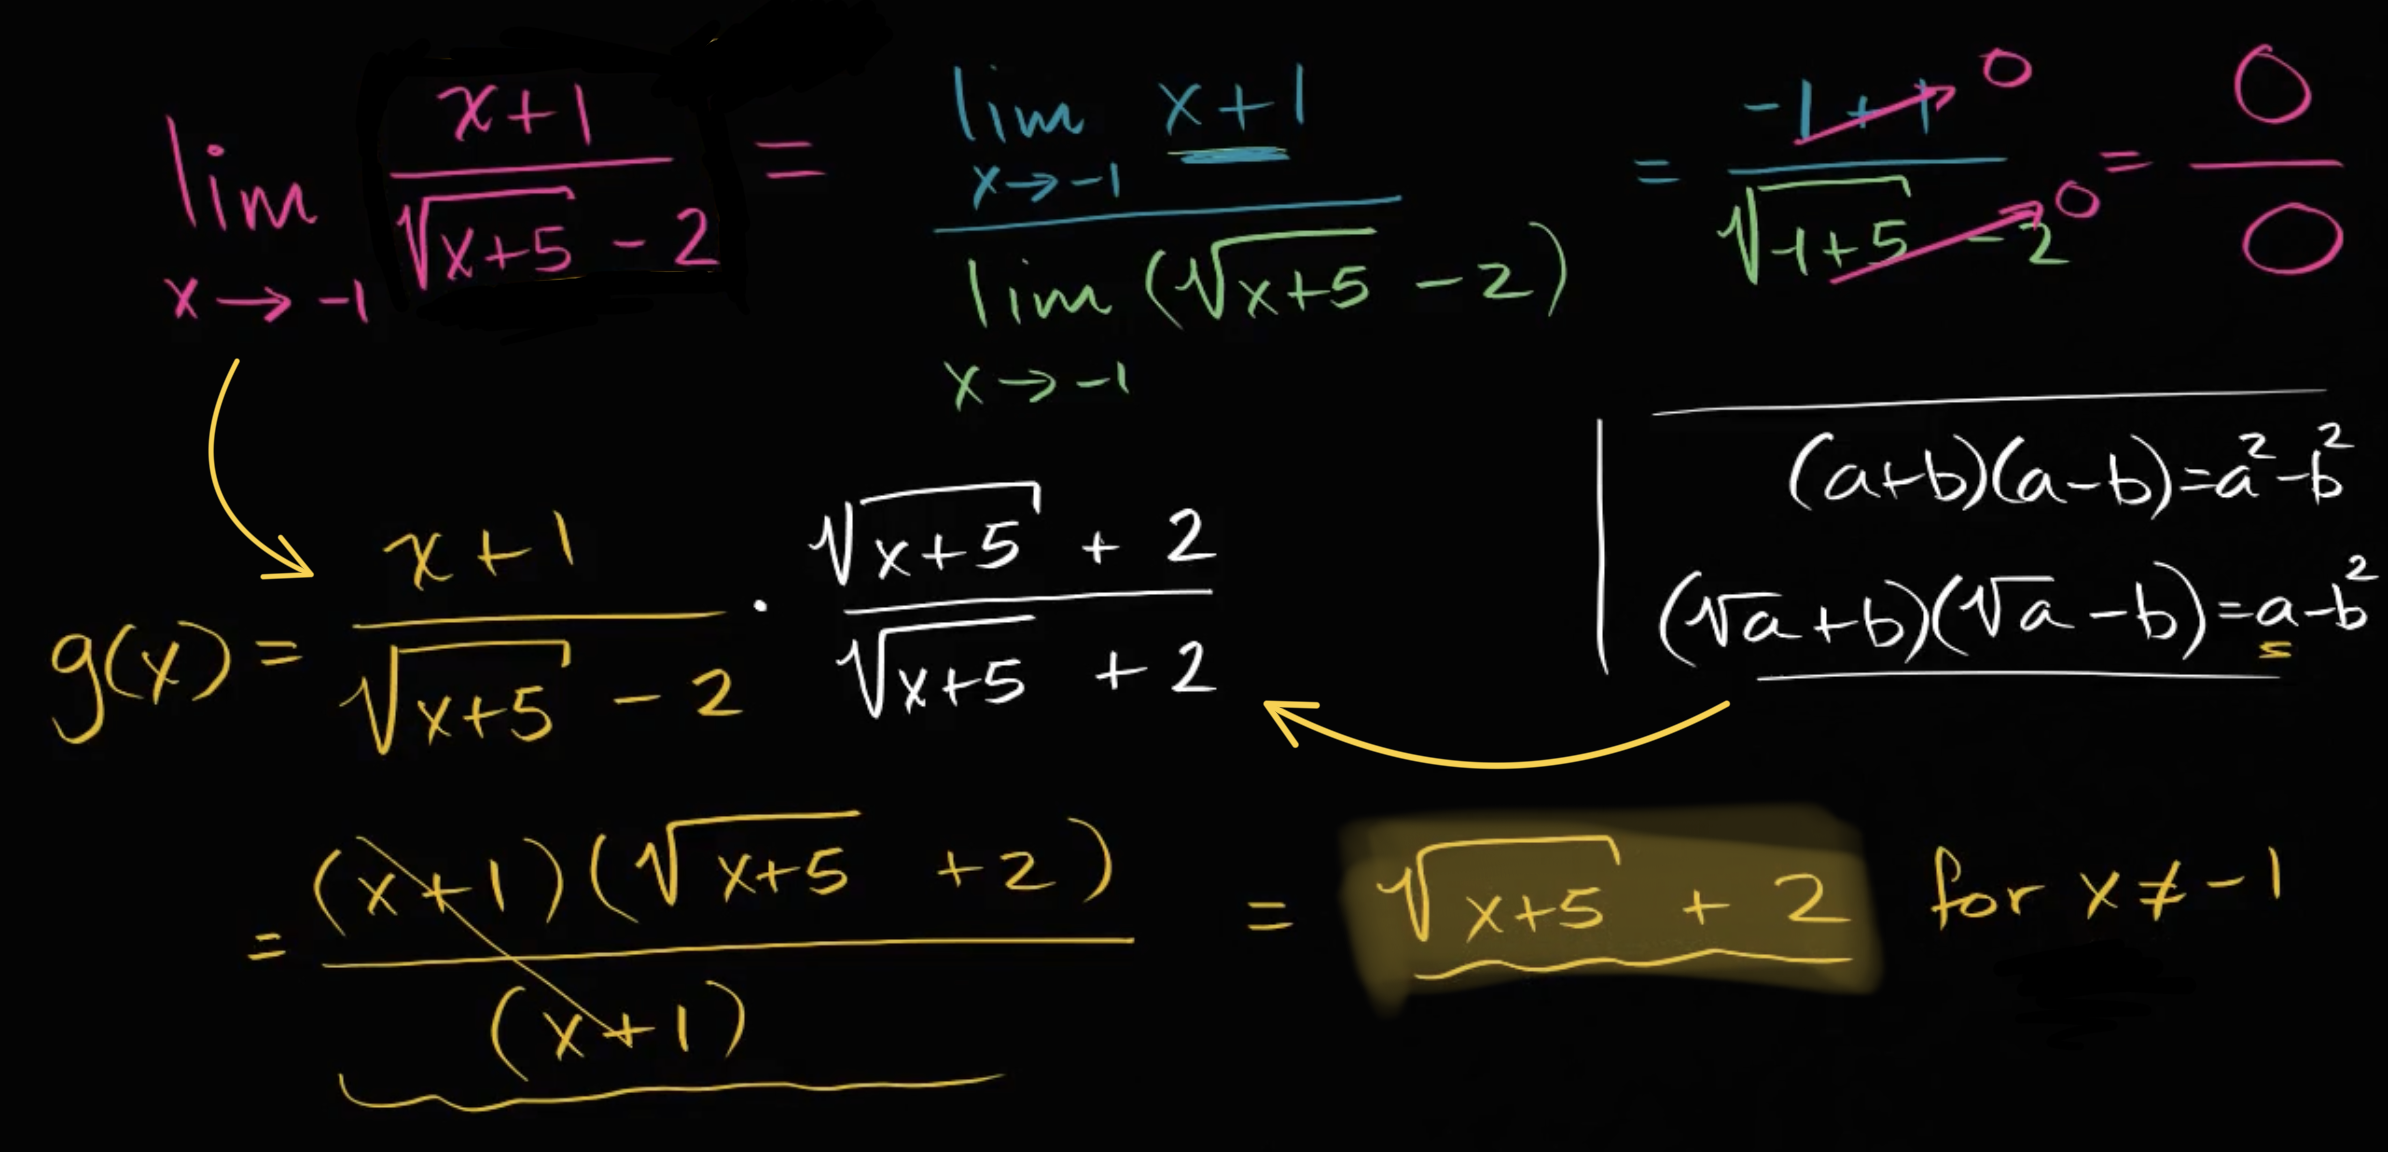 lim x→-1 (x+1)/(√(x+5) - 2) = (lim x→-1 x+1)/(lim x→-1 (√(x+5) - 2)) = (-1+1 → 0)/(√(-1+5) - 2 → 0) = 0/0
(a+b)(a-b)=a²-b²
(√a+b)(√a-b)=a-b²
g(x) = (x+1)/(√(x+5) - 2) · (√(x+5) + 2)/(√(x+5) + 2)
= ((x+1)(√(x+5) + 2))/((x+1)) = √(x+5) + 2 for x≠-1